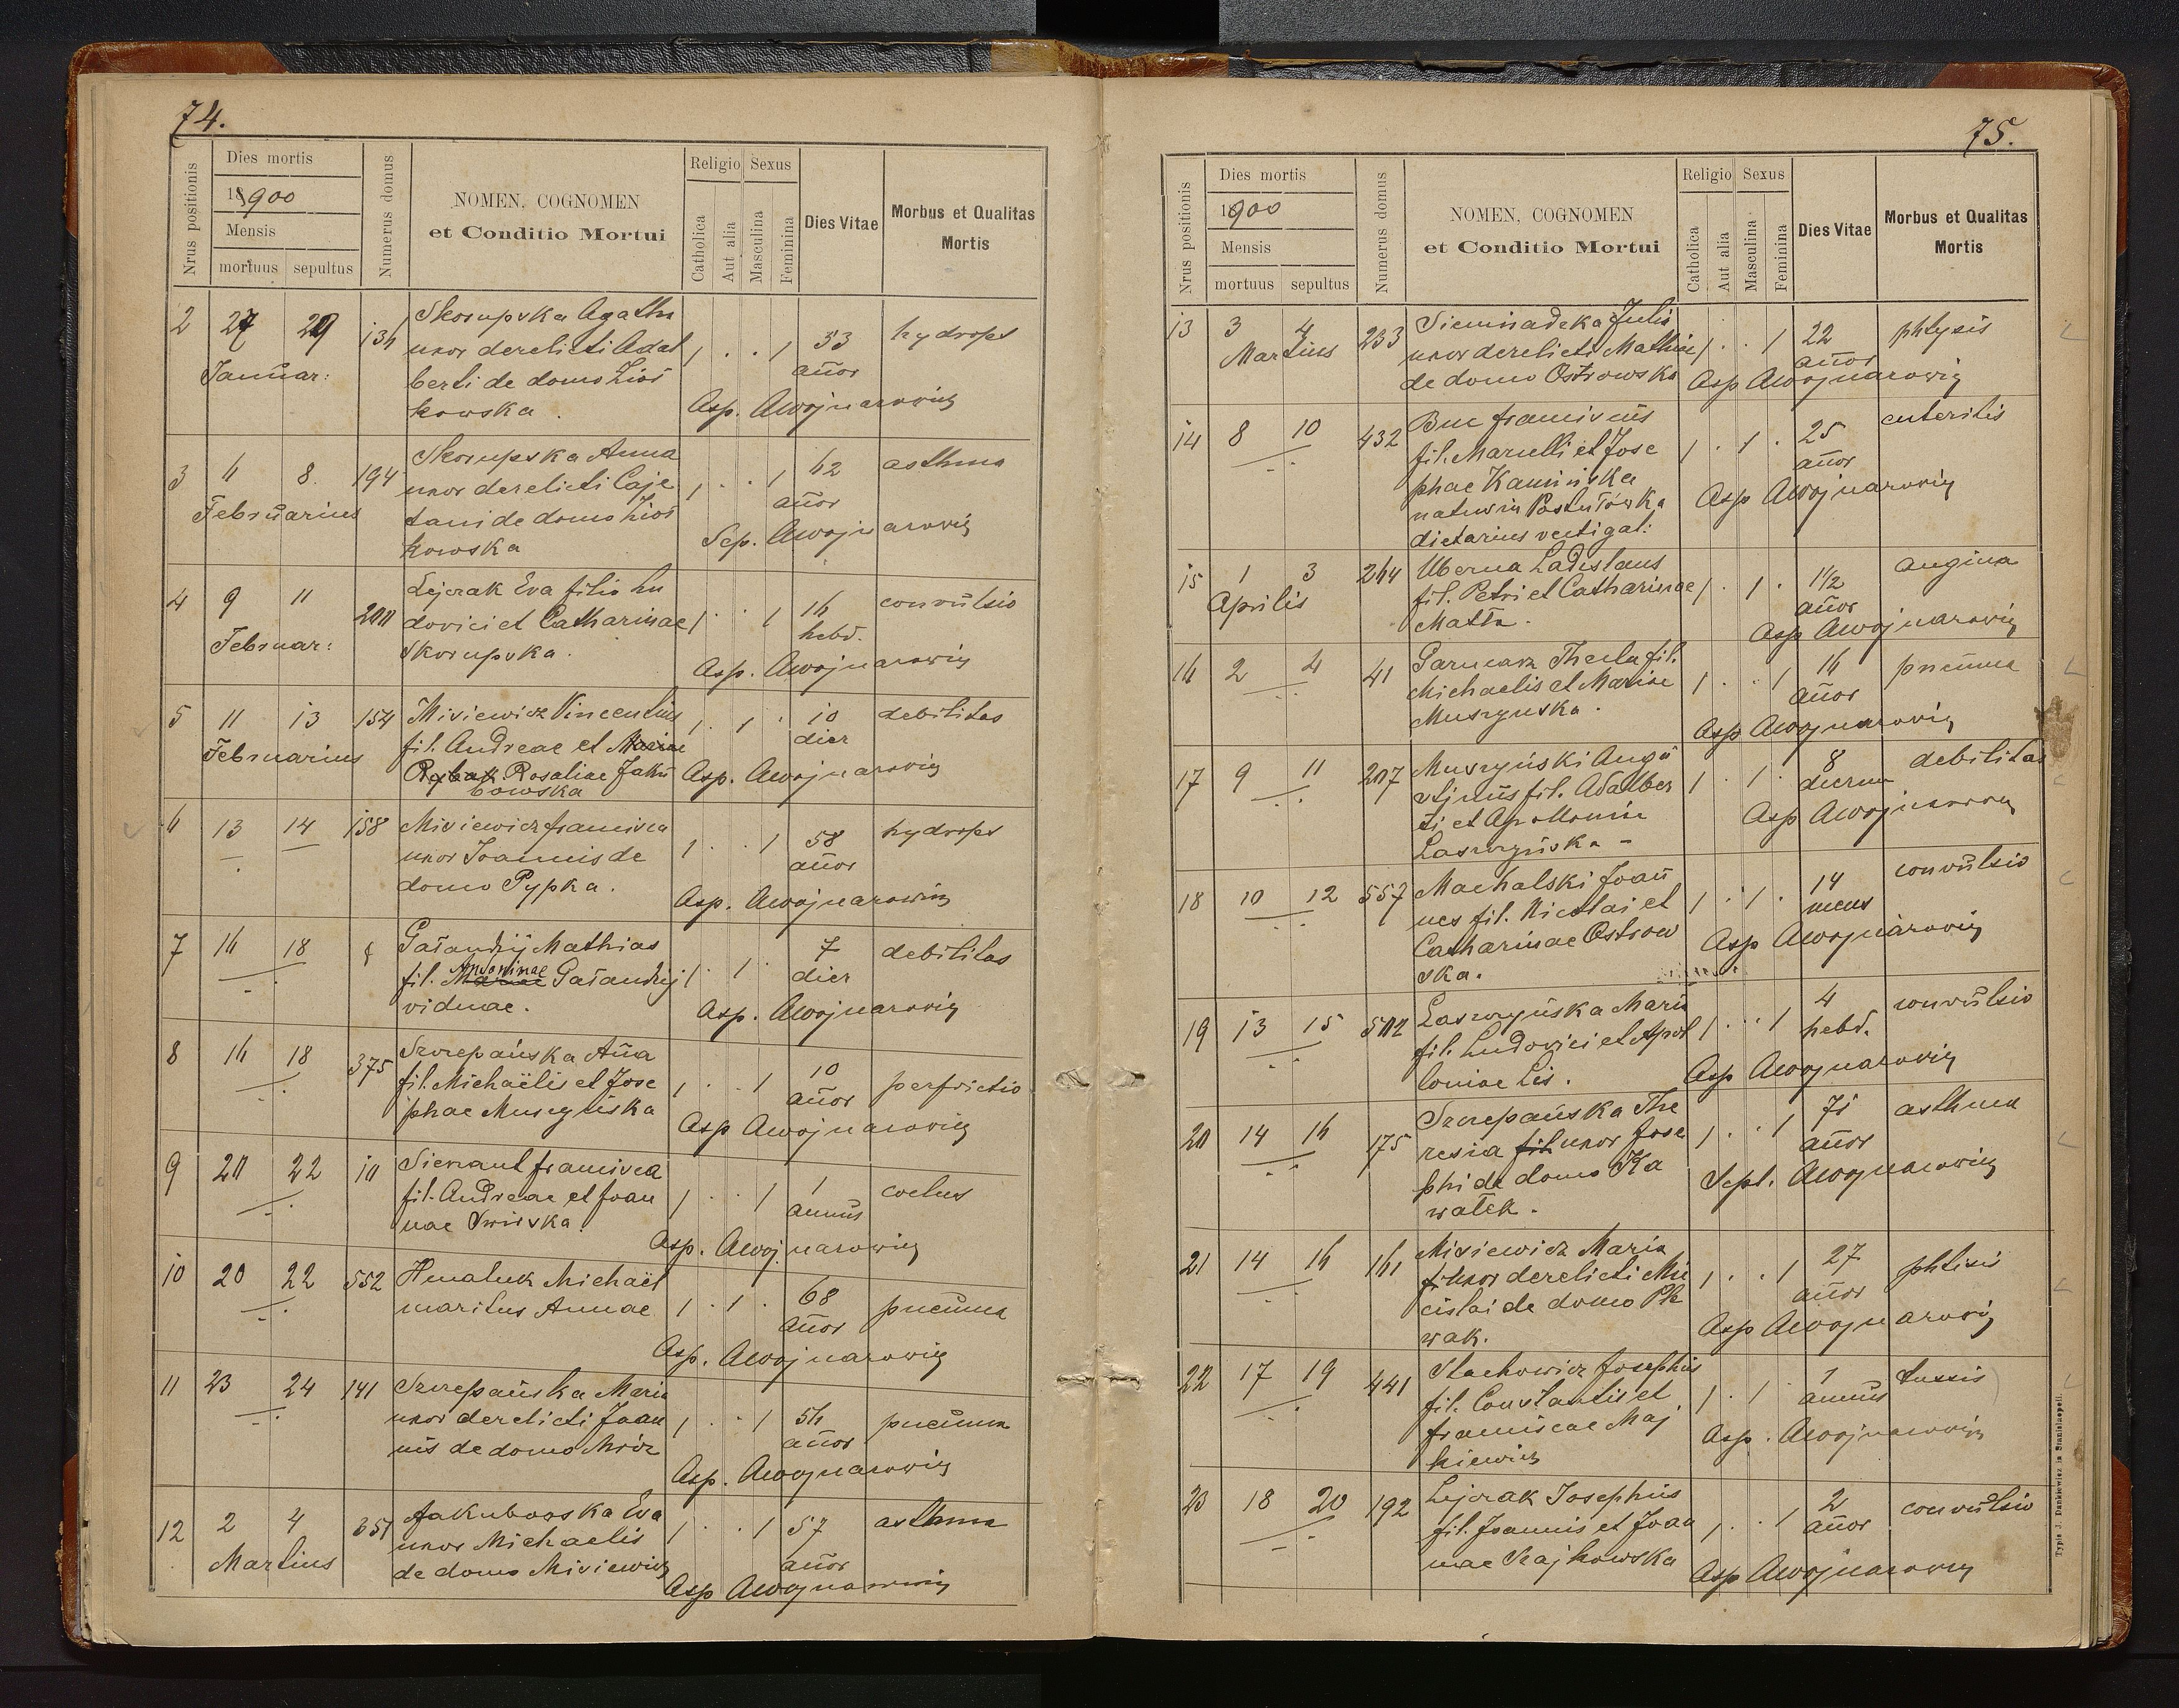 74.
Nrus positionis
Dies mortis
1900
Mensis
mortuus sepultus
Numerus domus
NOMEN, COGNOMEN
et Conditio Mortui
Religio Sexus
Catholica
Aut alia
Masculina
Feminina
Dies Vitae
Morbus et Qualitas
Mortis
2 27 29 136 Skorupska Agatha
uxor derelicti Adal 1 . . 1 53 hydrops
Januar: berti de domo Lioś añor
kowska. Asp. AWojnarowicz
3 6 8. 194 Skorupska Anna 62 asthma
uxor derelicti Caje 1 . . 1 añor
Februarius tani de domo Lioś
kowska Sep. AWojnarowicz
4 9 11 200 Lejczak Eva filia Lu
dovici et Catharinae 1 . . 1 16 convulsio
Februar: Skorupska. hebd.
Asp. AWojnarowicz
5 11 13 154 Misiewicz Vincentius 1 . 1 . 10 debilitas
fil. Andreae et Mariae dier
Februarius Rybak Rosaliae Jaku
bowska Asp. AWojnarowicz
6 13 14 158 Misiewicz Francisca 58 hydrops
uxor Joannis de 1 . . 1 añor
domo Pypka. Asp. AWojnarowicz
7 16 18 Gałandzij Mathias 7 debilitas
fil. Antoninae Gałandzij 1 . 1 . dier
viduae. Asp. AWojnarowicz
8 16 18 375 Szczepańska Aña 10
fil. Michaëlis et Jose 1 . . 1 añor perfrictio
phae Muszyńska Asp AWojnarowicz
9 20 22 10 Sieraut Francisca
fil. Andreae et Joan 1 . . 1 1
nae Swirska. annus
Asp. AWojnarowicz
10 20 22 552 Hmaluk Michaël 68
maritus Annae 1 . 1 . añor pneuma
Asp. AWojnarowicz
11 23 24 141 Szczepańska Maria
uxor derelicti Joan 1 . . 1 56 pneuma
nis de domo Mróz añor
Asp. AWojnarowicz
12 2 4 351 Jakubowska Eva
uxor Michaelis 1 . . 1 57 asthma
Martius de domo Misiewicz añor
Asp AWojnarowicz
75.
Nrus positionis
Dies mortis
1900
Mensis
mortuus sepultus
Numerus domus
NOMEN, COGNOMEN
et Conditio Mortui
Religio Sexus
Catholica
Aut alia
Masculina
Feminina
Dies Vitae
Morbus et Qualitas
Mortis
13 3 4 233 Sieminadzka Julia
Martius uxor derelicti Mathiae 1 . . 1 22 phtysis
de domo Ostrowska añor
Asp AWojnarowicz
14 8 10 432 Buc Franciscus 25 enteritis
fil. Marcelli et Jose 1 . 1 . añor
phae Kamińska
natus in Postołówka Asp AWojnarowicz
dietarius vectigal:
15 1 3 264 Uberna Ladislaus angina
Aprilis fil. Petri et Catharinae 1 . 1 . 1½
Matła. añor
Asp AWojnarowicz
16 2 4 41 Garncarz Thecla fil. 16 pneuma
Michaelis et Mariae 1 . . 1 añor
Muszyńska. Asp AWojnarowicz
17 9 11 207 Muszyński Augu 8 debilitas
stinus fil. Adalber 1 . 1 . dierum
ti et Apolloniae Asp AWojnarowicz
Laszczyńska -
18 10 12 557 Machalski Joañ 14 convulsio
nes fil. Nicolai et 1 . 1 . mens
Catharinae Ostrow Asp AWojnarowicz
ska.
19 13 15 502 Laszczyńska Maria 4 convulsio
fil. Ludovici et Apol 1 . . 1 hebd.
loniae Lis. Asp AWojnarowicz
20 14 16 175 Szczepańska The 71 asthma
resia fil uxor Jose 1 . . 1 añor
phi de domo Ko Sept. AWojnarowicz
wałek.
21 14 16 161 Misiewicz Maria 27 phtisis
uxor derelicti Mie 1 . . 1 añor
cislai de domo
wak. Asp AWojnarowicz
22 17 19 441 Stachowicz Josephus 1 tussis
fil. Constantis et 1 . 1 annus
Franciscae Maj Asp. AWojnarowicz
kiewicz
23 18 20 192 Lejczak Josephus 2 convulsio
fil. Joannis et Joan 1 . . 1 añor
nae Szajkowska Asp AWojnarowicz
Typis J. Dankiewicz in Stanislaopoli.